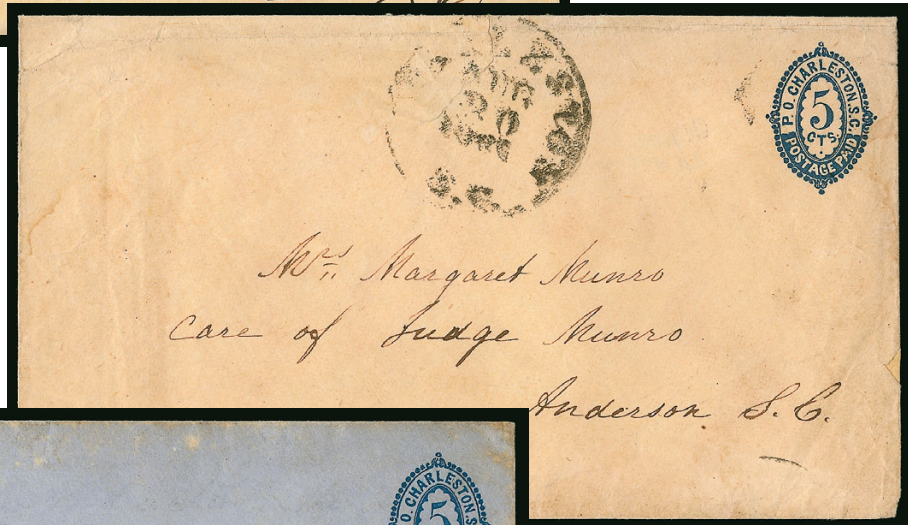 CHARLESTON
AUG
20
S.C.
P. O. CHARLESTON. S.C.
5
CTS.
POSTAGE PAID
Mrs Margaret Munro
Care of Judge Munro
Anderson S. C.
P. O. CHARLESTON. S.
5